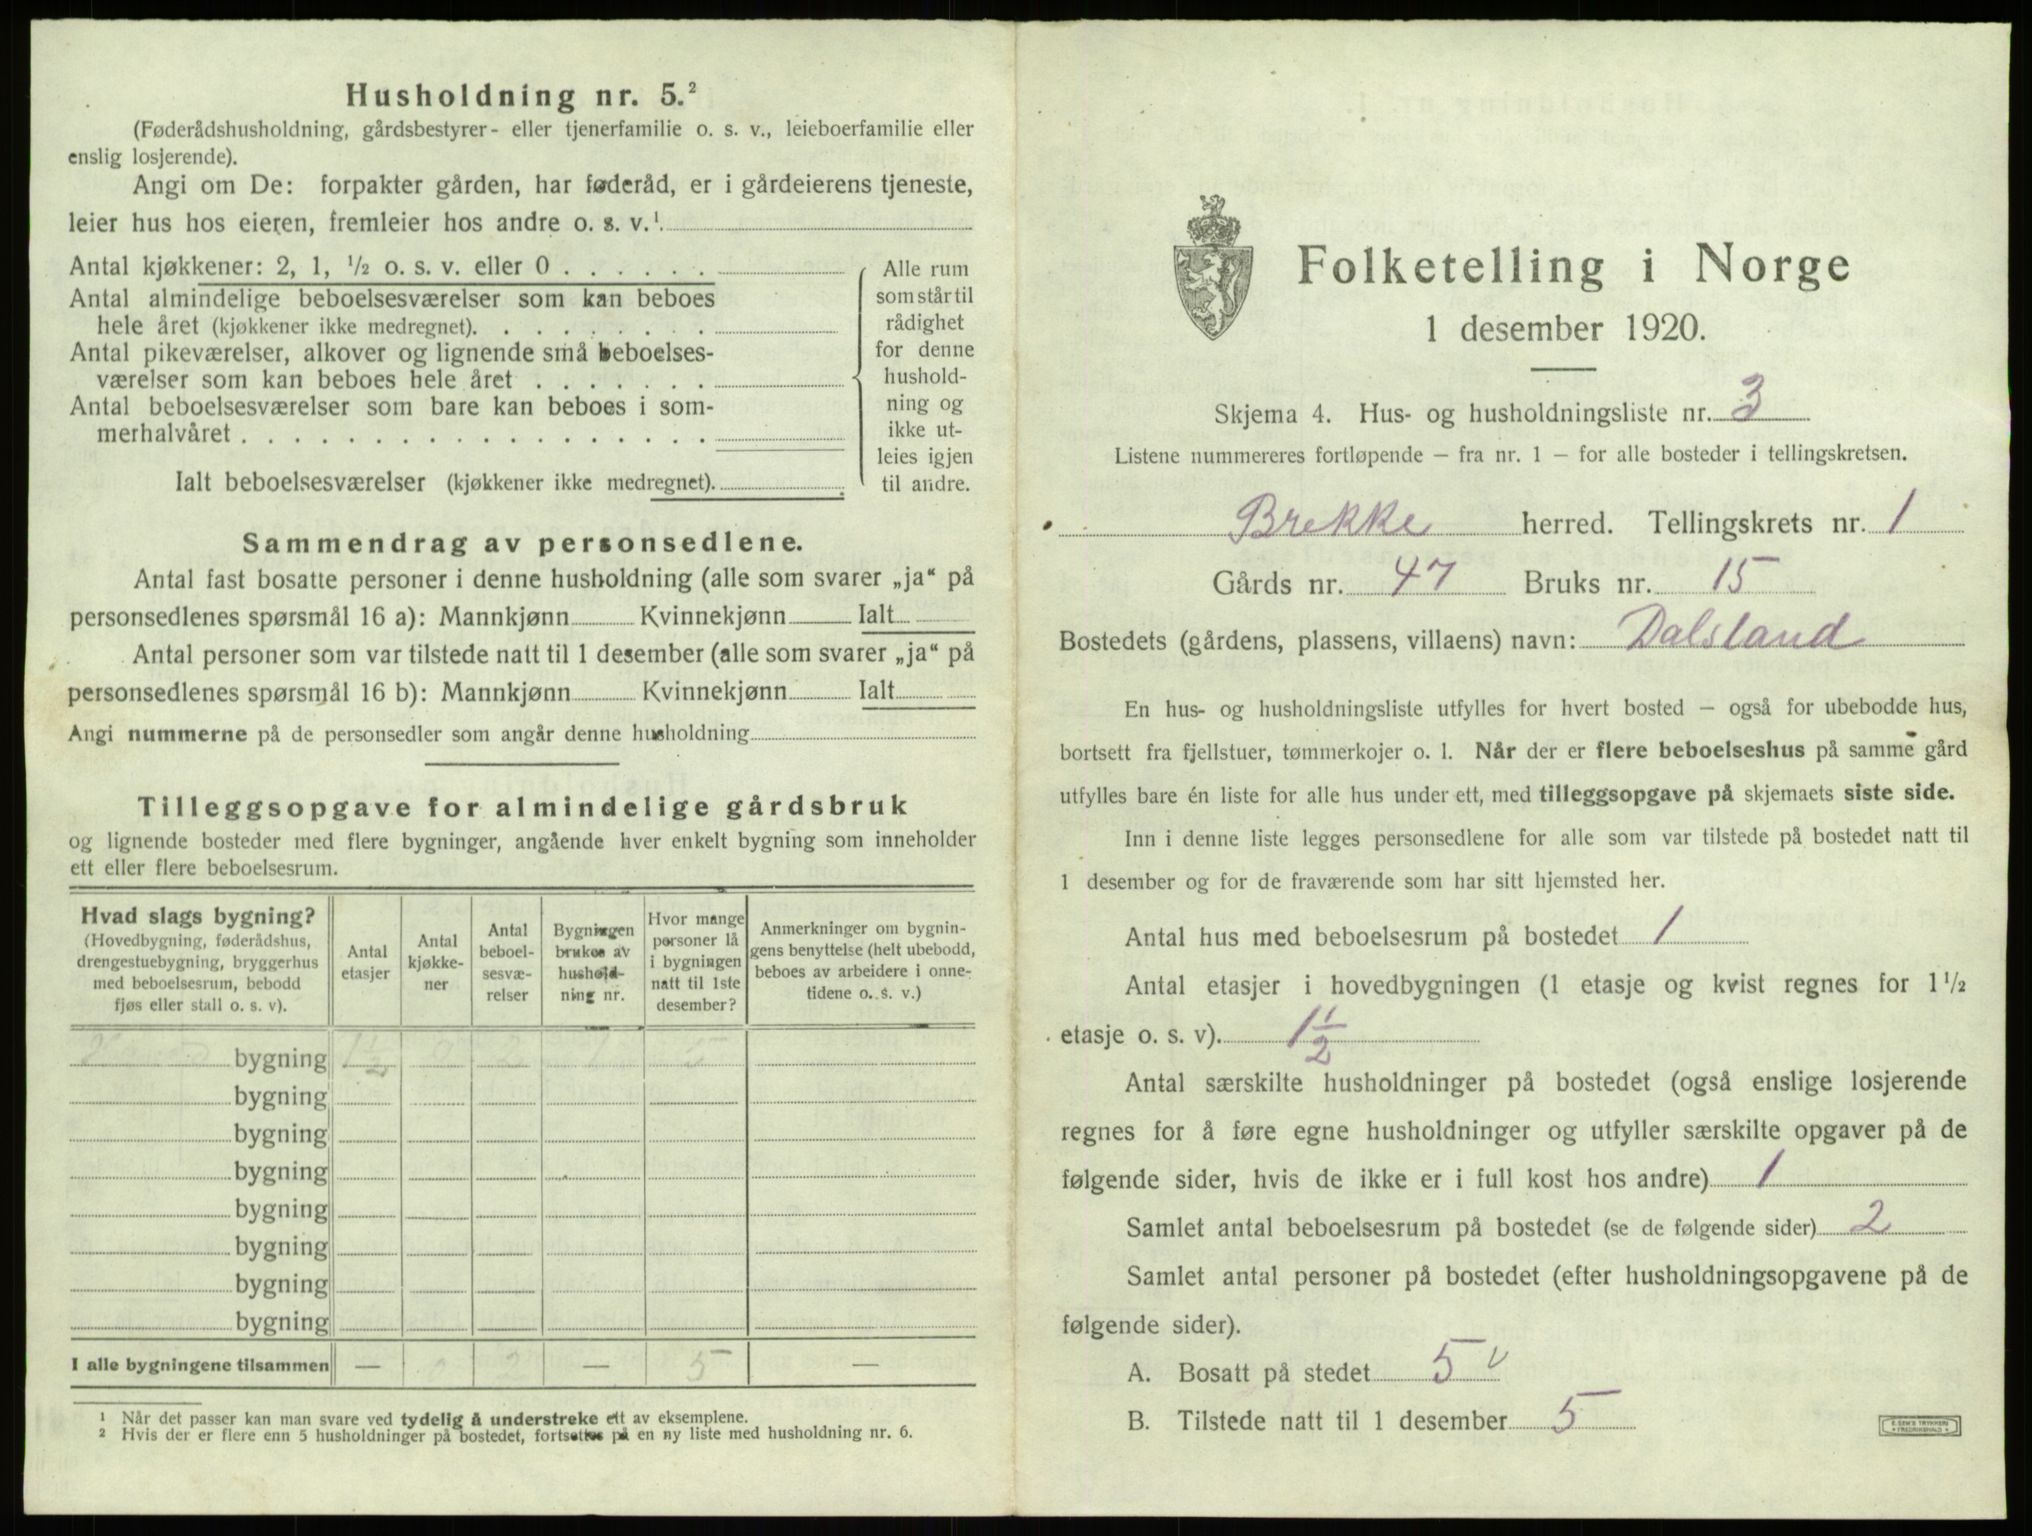 Husholdning nr. 5.²
(Føderådshusholdning, gårdsbestyrer- eller tjenerfamilie o. s. v., leieboerfamilie eller
enslig losjerende).
Angi om De: forpakter gården, har føderåd, er i gårdeierens tjeneste,
leier hus hos eieren, fremleier hos andre o. s. v.¹
Antal kjøkkener: 2, 1, ½ o. s. v. eller 0 . . . . . .
Antal almindelige beboelsesværelser som kan beboes
hele året (kjøkkener ikke medregnet). . . . . . . . .
Antal pikeværelser, alkover og lignende små beboelses-
værelser som kan beboes hele året . . . . . . .
Antal beboelsesværelser som bare kan beboes i som-
merhalvåret . . . . . . . . . . . . . . . . . .
Ialt beboelsesværelser (kjøkkener ikke medregnet).
Alle rum
som står til
rådighet
for denne
hushold-
ning og
ikke ut-
leies igjen
til andre.
Sammendrag av personsedlene.
Antal fast bosatte personer i denne husholdning (alle som svarer „ja“ på
personsedlenes spørsmål 16 a): Mannkjønn Kvinnekjønn Ialt
Antal personer som var tilstede natt til 1 desember (alle som svarer „ja“ på
personsedlenes spørsmål 16 b): Mannkjønn Kvinnekjønn Ialt
Angi nummerne på de personsedler som angår denne husholdning
Tilleggsopgave for almindelige gårdsbruk
og lignende bosteder med flere bygninger, angående hver enkelt bygning som inneholder
ett eller flere beboelsesrum.
Hvad slags bygning?
(Hovedbygning, føderådshus,
drengestuebygning, bryggerhus
med beboelsesrum, bebodd
fjøs eller stall o. s. v).
Antal
etasjer
Antal
kjøkke-
ner
Antal
beboel-
sesvæ-
relser
Bygningen
brukes av
hushold-
ning nr.
Hvor mange
personer lå
i bygningen
natt til 1ste
desember?
Anmerkninger om bygnin-
gens benyttelse (helt ubebodd,
beboes av arbeidere i onne-
tidene o. s. v.)
bygning 1½ 2 1 5
bygning
bygning
bygning
bygning
bygning
bygning
bygning
I alle bygningene tilsammen — 2 — 5 —
¹ Når det passer kan man svare ved tydelig å understreke ett av eksemplene.
² Hvis der er flere enn 5 husholdninger på bostedet, fortsettes på en ny liste med husholdning nr. 6.
Folketelling i Norge
1 desember 1920.
Skjema 4. Hus- og husholdningsliste nr. 3
Listene nummereres fortløpende — fra nr. 1 — for alle bosteder i tellingskretsen.
Brekke herred. Tellingskrets nr. 1
Gårds nr. 47 Bruks nr. 15
Bostedets (gårdens, plassens, villaens) navn: Dalsland
En hus- og husholdningsliste utfylles for hvert bosted — også for ubebodde hus,
bortsett fra fjellstuer, tømmerkojer o. l. Når der er flere beboelseshus på samme gård
utfylles bare én liste for alle hus under ett, med tilleggsopgave på skjemaets siste side.
Inn i denne liste legges personsedlene for alle som var tilstede på bostedet natt til
1 desember og for de fraværende som har sitt hjemsted her.
Antal hus med beboelsesrum på bostedet 1
Antal etasjer i hovedbygningen (1 etasje og kvist regnes for 1½
etasje o. s. v). 1½
Antal særskilte husholdninger på bostedet (også enslige losjerende
regnes for å føre egne husholdninger og utfyller særskilte opgaver på de
følgende sider, hvis de ikke er i full kost hos andre) 1
Samlet antal beboelsesrum på bostedet (se de følgende sider) 2
Samlet antal personer på bostedet (efter husholdningsopgavene på de
følgende sider).
A. Bosatt på stedet 5 v
B. Tilstede natt til 1 desember 5
E. SEM'S TRYKKERI
FREDRIKSHALD